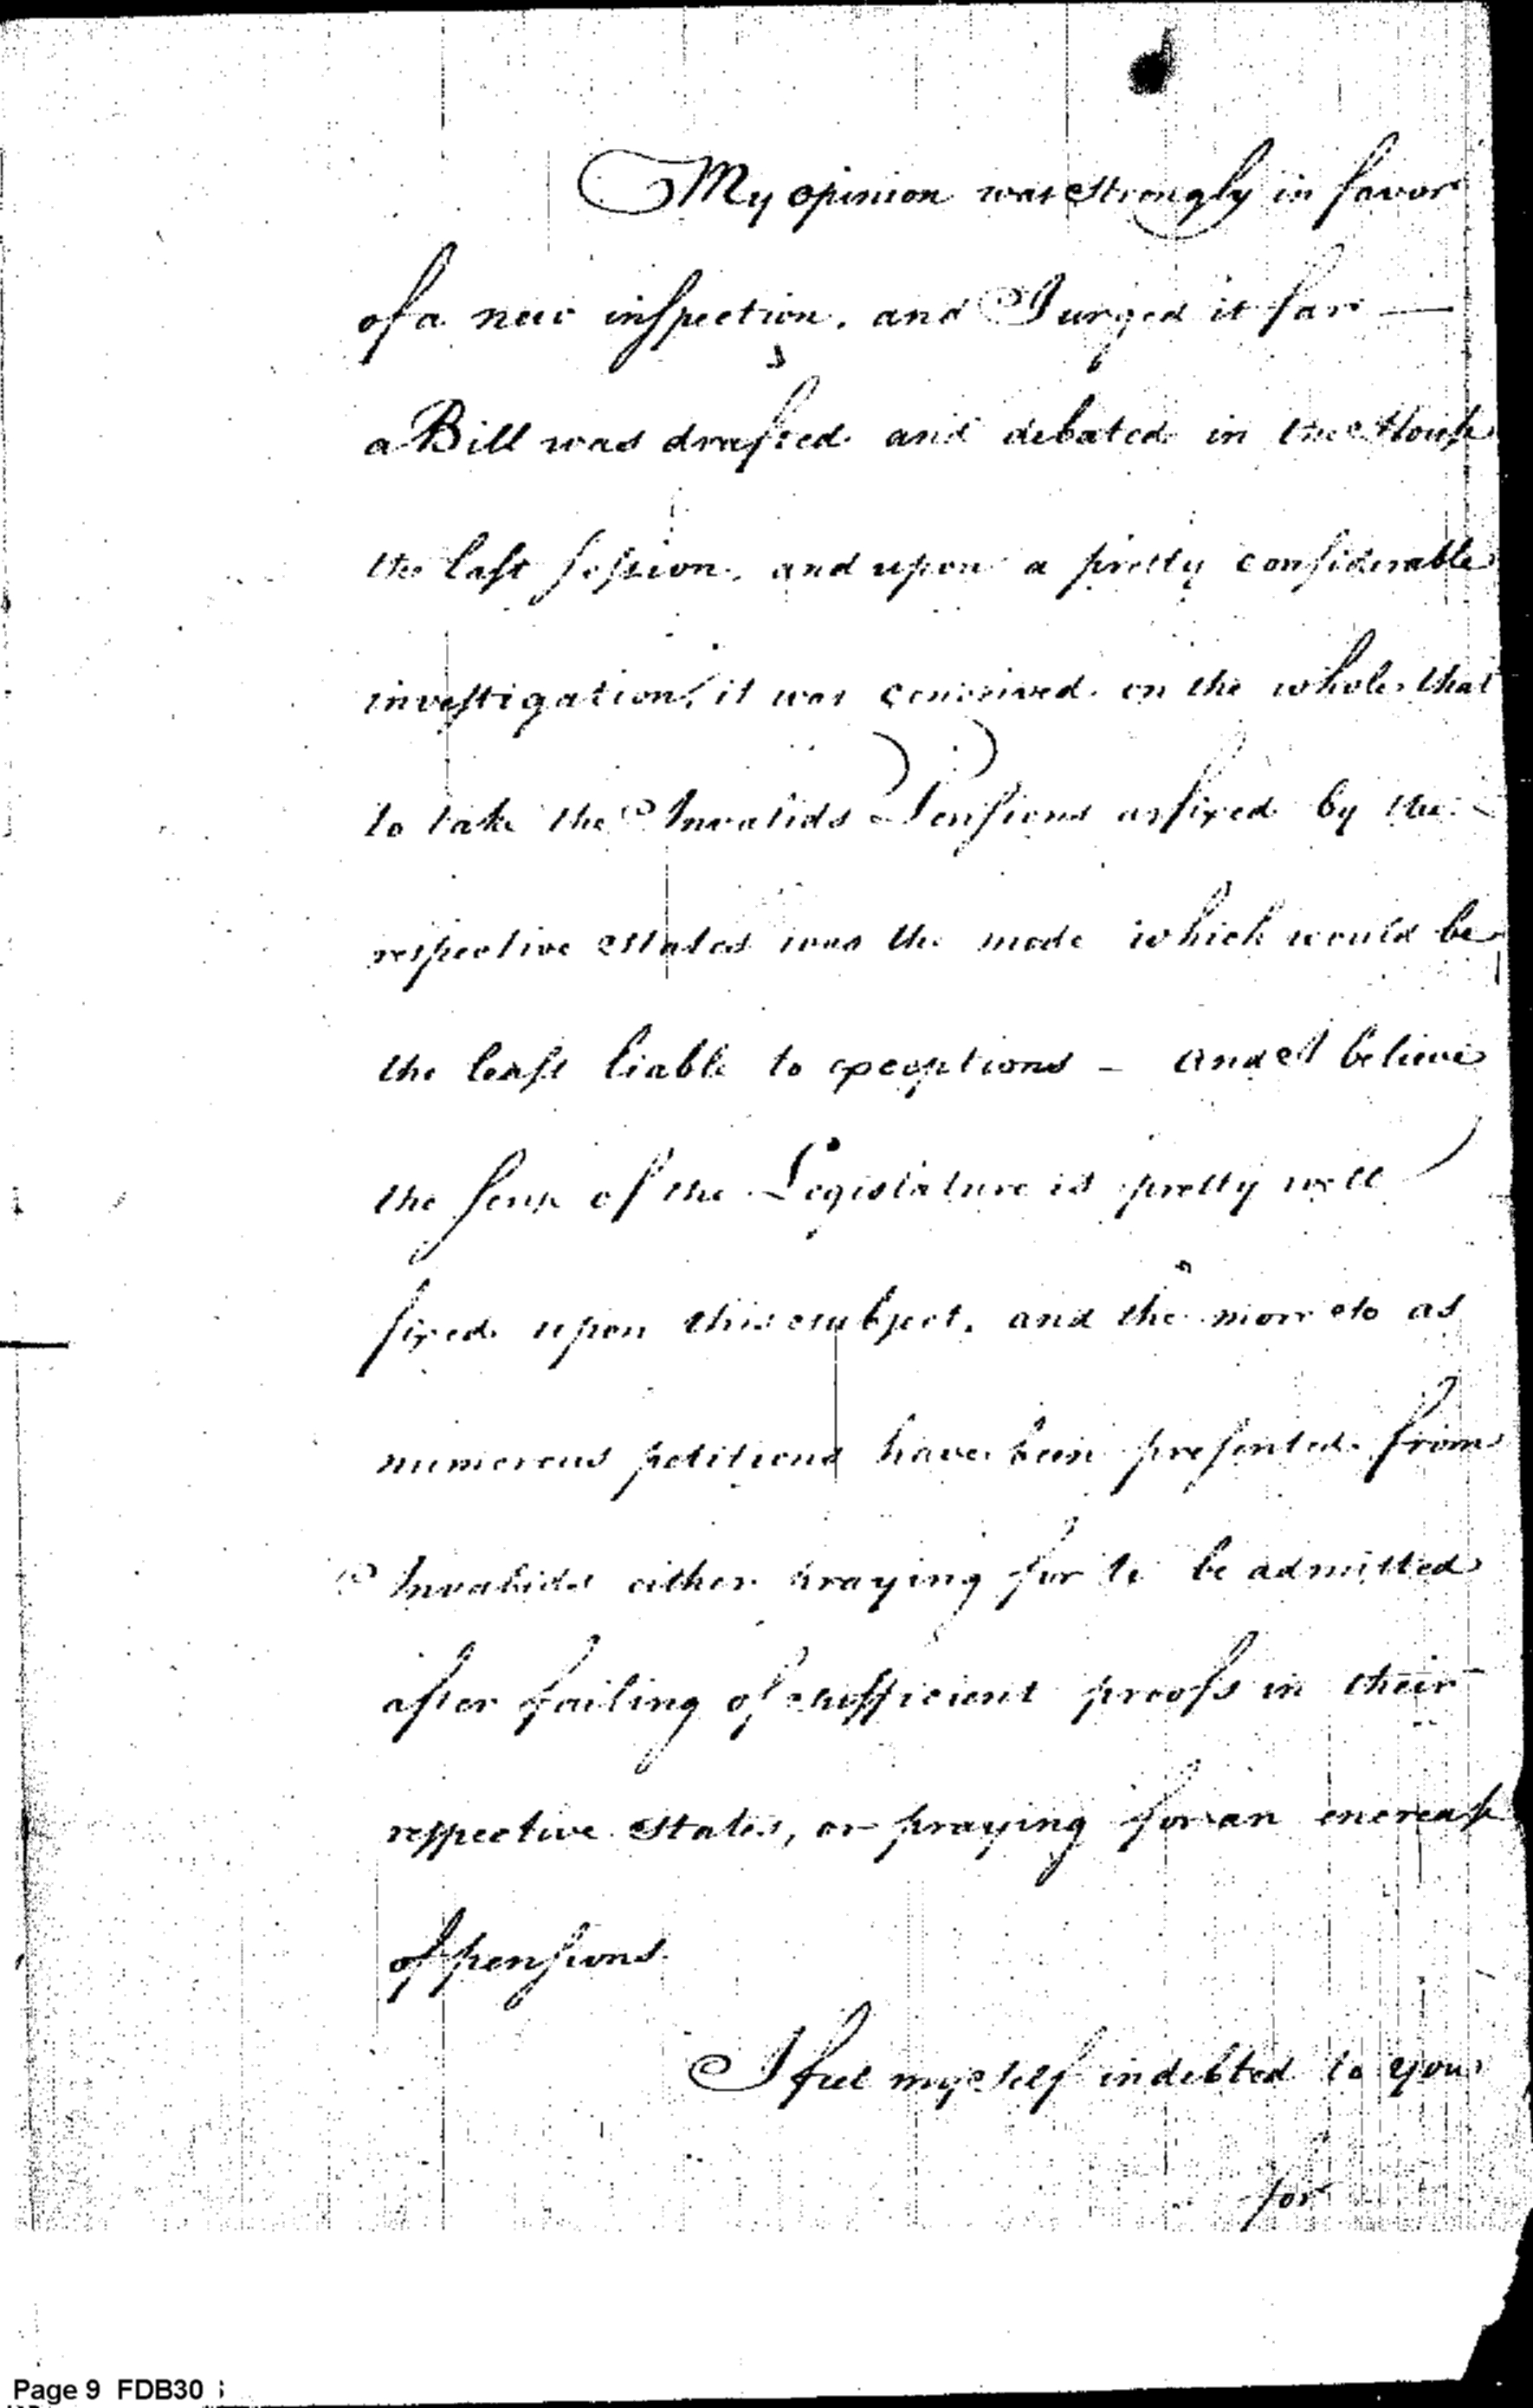 My opinion was strongly in favor
of a new inspection, and I urged it far —
a Bill was drafted and debated in the House
the last session, and upon a pretty considerable
investigation, it was conceived on the whole, that
to take the Invalids Pensions as fixed by the
respective States was the mode which would be
the least liable to exceptions — and I believe
the sense of the Legislature is pretty well
fixed upon this subject, and the more so as
numerous petitions have been presented from
Invalids either praying for to be admitted
after failing of sufficient proofs in their
respective States, or praying for an encrease
of pensions.
I feel myself indebted to you
for
Page 9 FDB30